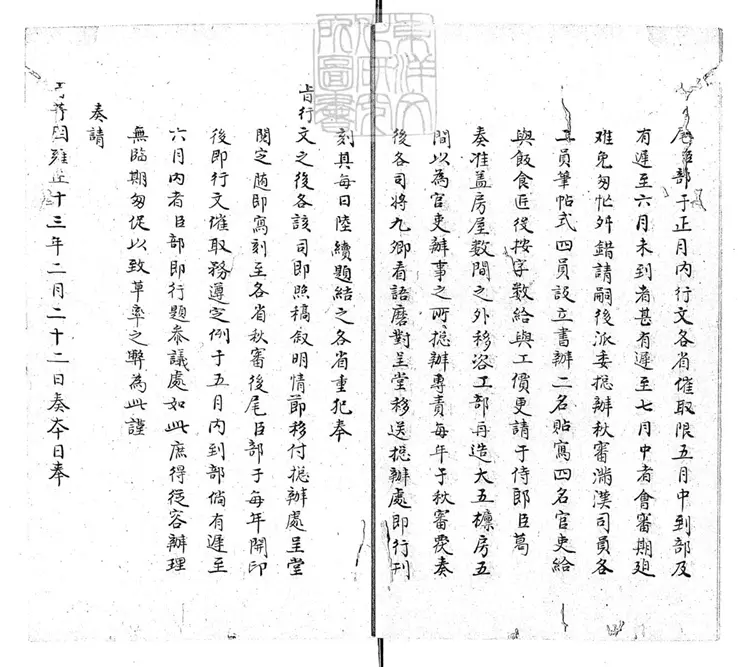 部于正月內行文各省催取限五月中到部及
有遲至六月未到者甚有遲至七月中者會審期廹
難免匆忙舛錯請嗣後派委揔辦秋審滿漢司員各
二員筆帖式四員設立書辦二名貼寫四名官吏給
與飯食匠役按字數給與工價更請于侍郎臣葛
奏准盖房屋數間之外移咨工部再造大五檩房五
間以為官吏辦事之所揔辦專責每年于秋審覆奏
後各司將九卿看語磨對呈堂移送揔辦處即行刊
刻其每日陸續題結之各省重犯奉
旨行文之後各該司即照稿叙明情節移付揔辦處呈堂
閱定随即寫刻至各省秋審後尾臣部于每年開印
後即行文催取務遵定例于五月內到部倘有遲至
六月內者臣部即行題叅議處如此庶得從容辦理
無臨期匆促以致草率之弊為此謹
奏請
雍正十三年二月二十二日奏本日奉
東洋文
化研究
所圖書